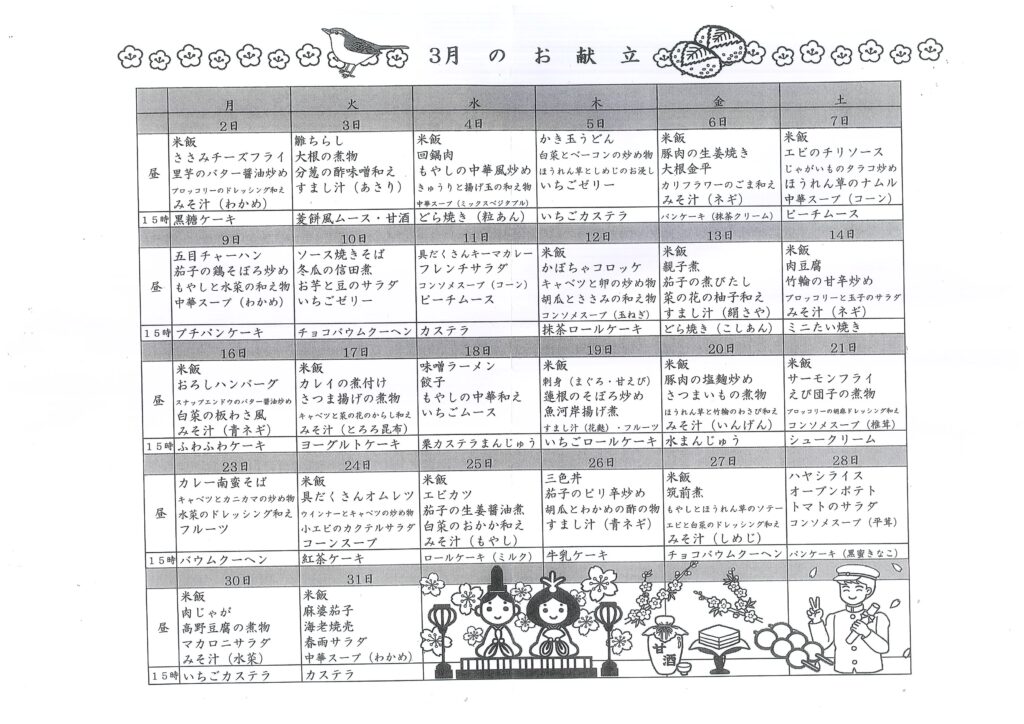 3月 の お 献 立
月 火 水 木 金 土
2日 3日 4日 5日 6日 7日
昼
米飯
ささみチーズフライ
里芋のバター醤油炒め
ブロッコリーのドレッシング和え
みそ汁（わかめ）
雛ちらし
大根の煮物
分葱の酢味噌和え
すまし汁（あさり）
米飯
回鍋肉
もやしの中華風炒め
きゅうりと揚げ玉の和え物
中華スープ（ミックスベジタブル）
かき玉うどん
白菜とベーコンの炒め物
ほうれん草としめじのお浸し
いちごゼリー
米飯
豚肉の生姜焼き
大根金平
カリフラワーのごま和え
みそ汁（ネギ）
米飯
エビのチリソース
じゃがいものタラコ炒め
ほうれん草のナムル
中華スープ（コーン）
15時 黒糖ケーキ 菱餅風ムース・甘酒 どら焼き（粒あん） いちごカステラ パンケーキ（抹茶クリーム） ピーチムース
9日 10日 11日 12日 13日 14日
昼
五目チャーハン
茄子の鶏そぼろ炒め
もやしと水菜の和え物
中華スープ（わかめ）
ソース焼きそば
冬瓜の信田煮
お芋と豆のサラダ
いちごゼリー
具だくさんキーマカレー
フレンチサラダ
コンソメスープ（コーン）
ピーチムース
米飯
かぼちゃコロッケ
キャベツと卵の炒め物
胡瓜とささみの和え物
コンソメスープ（玉ねぎ）
米飯
親子煮
茄子の煮びたし
菜の花の柚子和え
すまし汁（絹さや）
米飯
肉豆腐
竹輪の甘辛炒め
ブロッコリーと玉子のサラダ
みそ汁（ネギ）
15時 プチパンケーキ チョコバウムクーヘン カステラ 抹茶ロールケーキ どら焼き（こしあん） ミニたい焼き
16日 17日 18日 19日 20日 21日
昼
米飯
おろしハンバーグ
スナップエンドウのバター醤油炒め
白菜の板わさ風
みそ汁（青ネギ）
米飯
カレイの煮付け
さつま揚げの煮物
キャベツと菜の花のからし和え
みそ汁（とろろ昆布）
味噌ラーメン
餃子
もやしの中華和え
いちごムース
米飯
刺身（まぐろ・甘えび）
蓮根のそぼろ炒め
魚河岸揚げ煮
すまし汁（花麩）・フルーツ
米飯
豚肉の塩麹炒め
さつまいもの煮物
ほうれん草と竹輪のわさび和え
みそ汁（いんげん）
米飯
サーモンフライ
えび団子の煮物
ブロッコリーの胡麻ドレッシング和え
コンソメスープ（椎茸）
15時 ふわふわケーキ ヨーグルトケーキ 栗カステラまんじゅう いちごロールケーキ 水まんじゅう シュークリーム
23日 24日 25日 26日 27日 28日
昼
カレー南蛮そば
キャベツとカニカマの炒め物
水菜のドレッシング和え
フルーツ
米飯
具だくさんオムレツ
ウインナーとキャベツの炒め物
小エビのカクテルサラダ
コーンスープ
米飯
エビカツ
茄子の生姜醤油煮
白菜のおかか和え
みそ汁（もやし）
三色丼
茄子のピリ辛炒め
胡瓜とわかめの酢の物
すまし汁（青ネギ）
米飯
筑前煮
もやしとほうれん草のソテー
エビと白菜のドレッシング和え
みそ汁（しめじ）
ハヤシライス
オーブンポテト
トマトのサラダ
コンソメスープ（平茸）
15時 バウムクーヘン 紅茶ケーキ ロールケーキ（ミルク） 牛乳ケーキ チョコバウムクーヘン パンケーキ（黒蜜きなこ）
30日 31日
昼
米飯
肉じゃが
高野豆腐の煮物
マカロニサラダ
みそ汁（水菜）
米飯
麻婆茄子
海老焼売
春雨サラダ
中華スープ（わかめ）
15時 いちごカステラ カステラ
甘酒